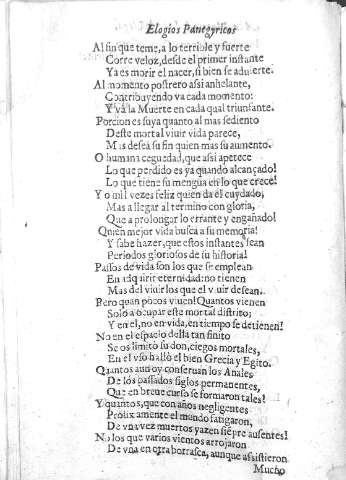 Elogios Panegyricos
Al fin que teme, a lo terrible y fuerte
Corre veloz, desde el primer instante
Ya es morir el nacer, si bien se aduierte.
Al momento postrero assi anhelante,
Contribuyendo va cada momento:
Y và la Muerte en cada qual triunfante.
Porcion es suya quanto al mas sediento
Deste mortal viuir vida parece,
Mas desea su fin quien mas su aumento.
O humana ceguedad, que assi apetece
Lo que perdido es ya quando alcançado!
Lo que tiene su mengua en lo que crece!
Y o mil vezes feliz quien da el cuydado,
Mas a llegar al termino con gloria,
Que a prolongar lo errante y engañado!
Quien mejor vida busca a su memoria!
Y sabe hazer, que estos instantes sean
Periodos gloriosos de su historia!
Passos de vida son los que se emplean
En adquirir eternidad: no tienen
Mas del viuir los que el viuir desean.
Pero quan pocos viuen! Quantos vienen
Solo a ocupar este mortal distrito;
Y en el, no en vida, en tiempo se detienen!
No en el espacio della tan finito
Se os limitò su don, ciegos mortales,
En el vso hallò el bien Grecia y Egito.
Quantos aun oy conseruan los Anales
De los passados siglos permanentes,
Que en breue curso se formaron tales!
Y quantos, que con años negligentes
Prolixamente el mundo fatigaron,
De vna vez muertos yazen siẽpre ausentes!
No los que varios vientos arrojaron
De vna en otra borrasca, aunque assistieron
Mucho